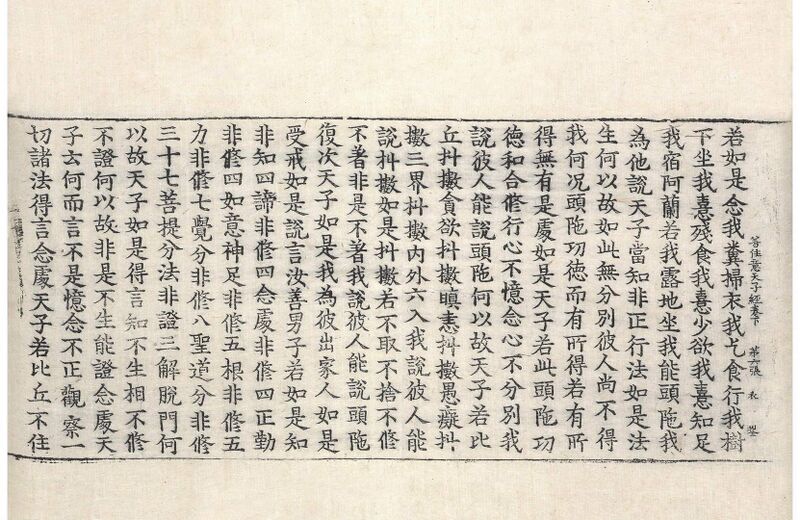 善住意天子經卷下 第六張 衣
若如是念我糞掃衣我乞食行我樹
下坐我憙殘食我憙少欲我憙知足
我宿阿蘭若我露地坐我能頭陁我
為他說天子當知非正行法如是法
生何以故如此無分別彼人尚不得
我何況頭陁功德而有所得若有所
得無有是處如是天子若此頭陁功
德和合修行心不憶念心不分別我
說彼人能說頭陁何以故天子若比
丘抖擻貪欲抖擻瞋恚抖擻愚癡抖
擻三界抖擻內外六入我說彼人能
說抖擻如是抖擻若不取不捨不修
不著非是不著我說彼人能說頭陁
復次天子如是我為彼出家人如是
受戒如是說言汝善男子若如是知
非知四諦非修四念處非修四正勤
非修四如意神足非修五根非修五
力非修七覺分非修八聖道分非修
三十七菩提分法非證三解脫門何
以故天子如是得言知不生相不修
不證何以故非是不生能證念處天
子云何而言不是憶念不正觀察一
切諸法得言念處天子若比丘不住